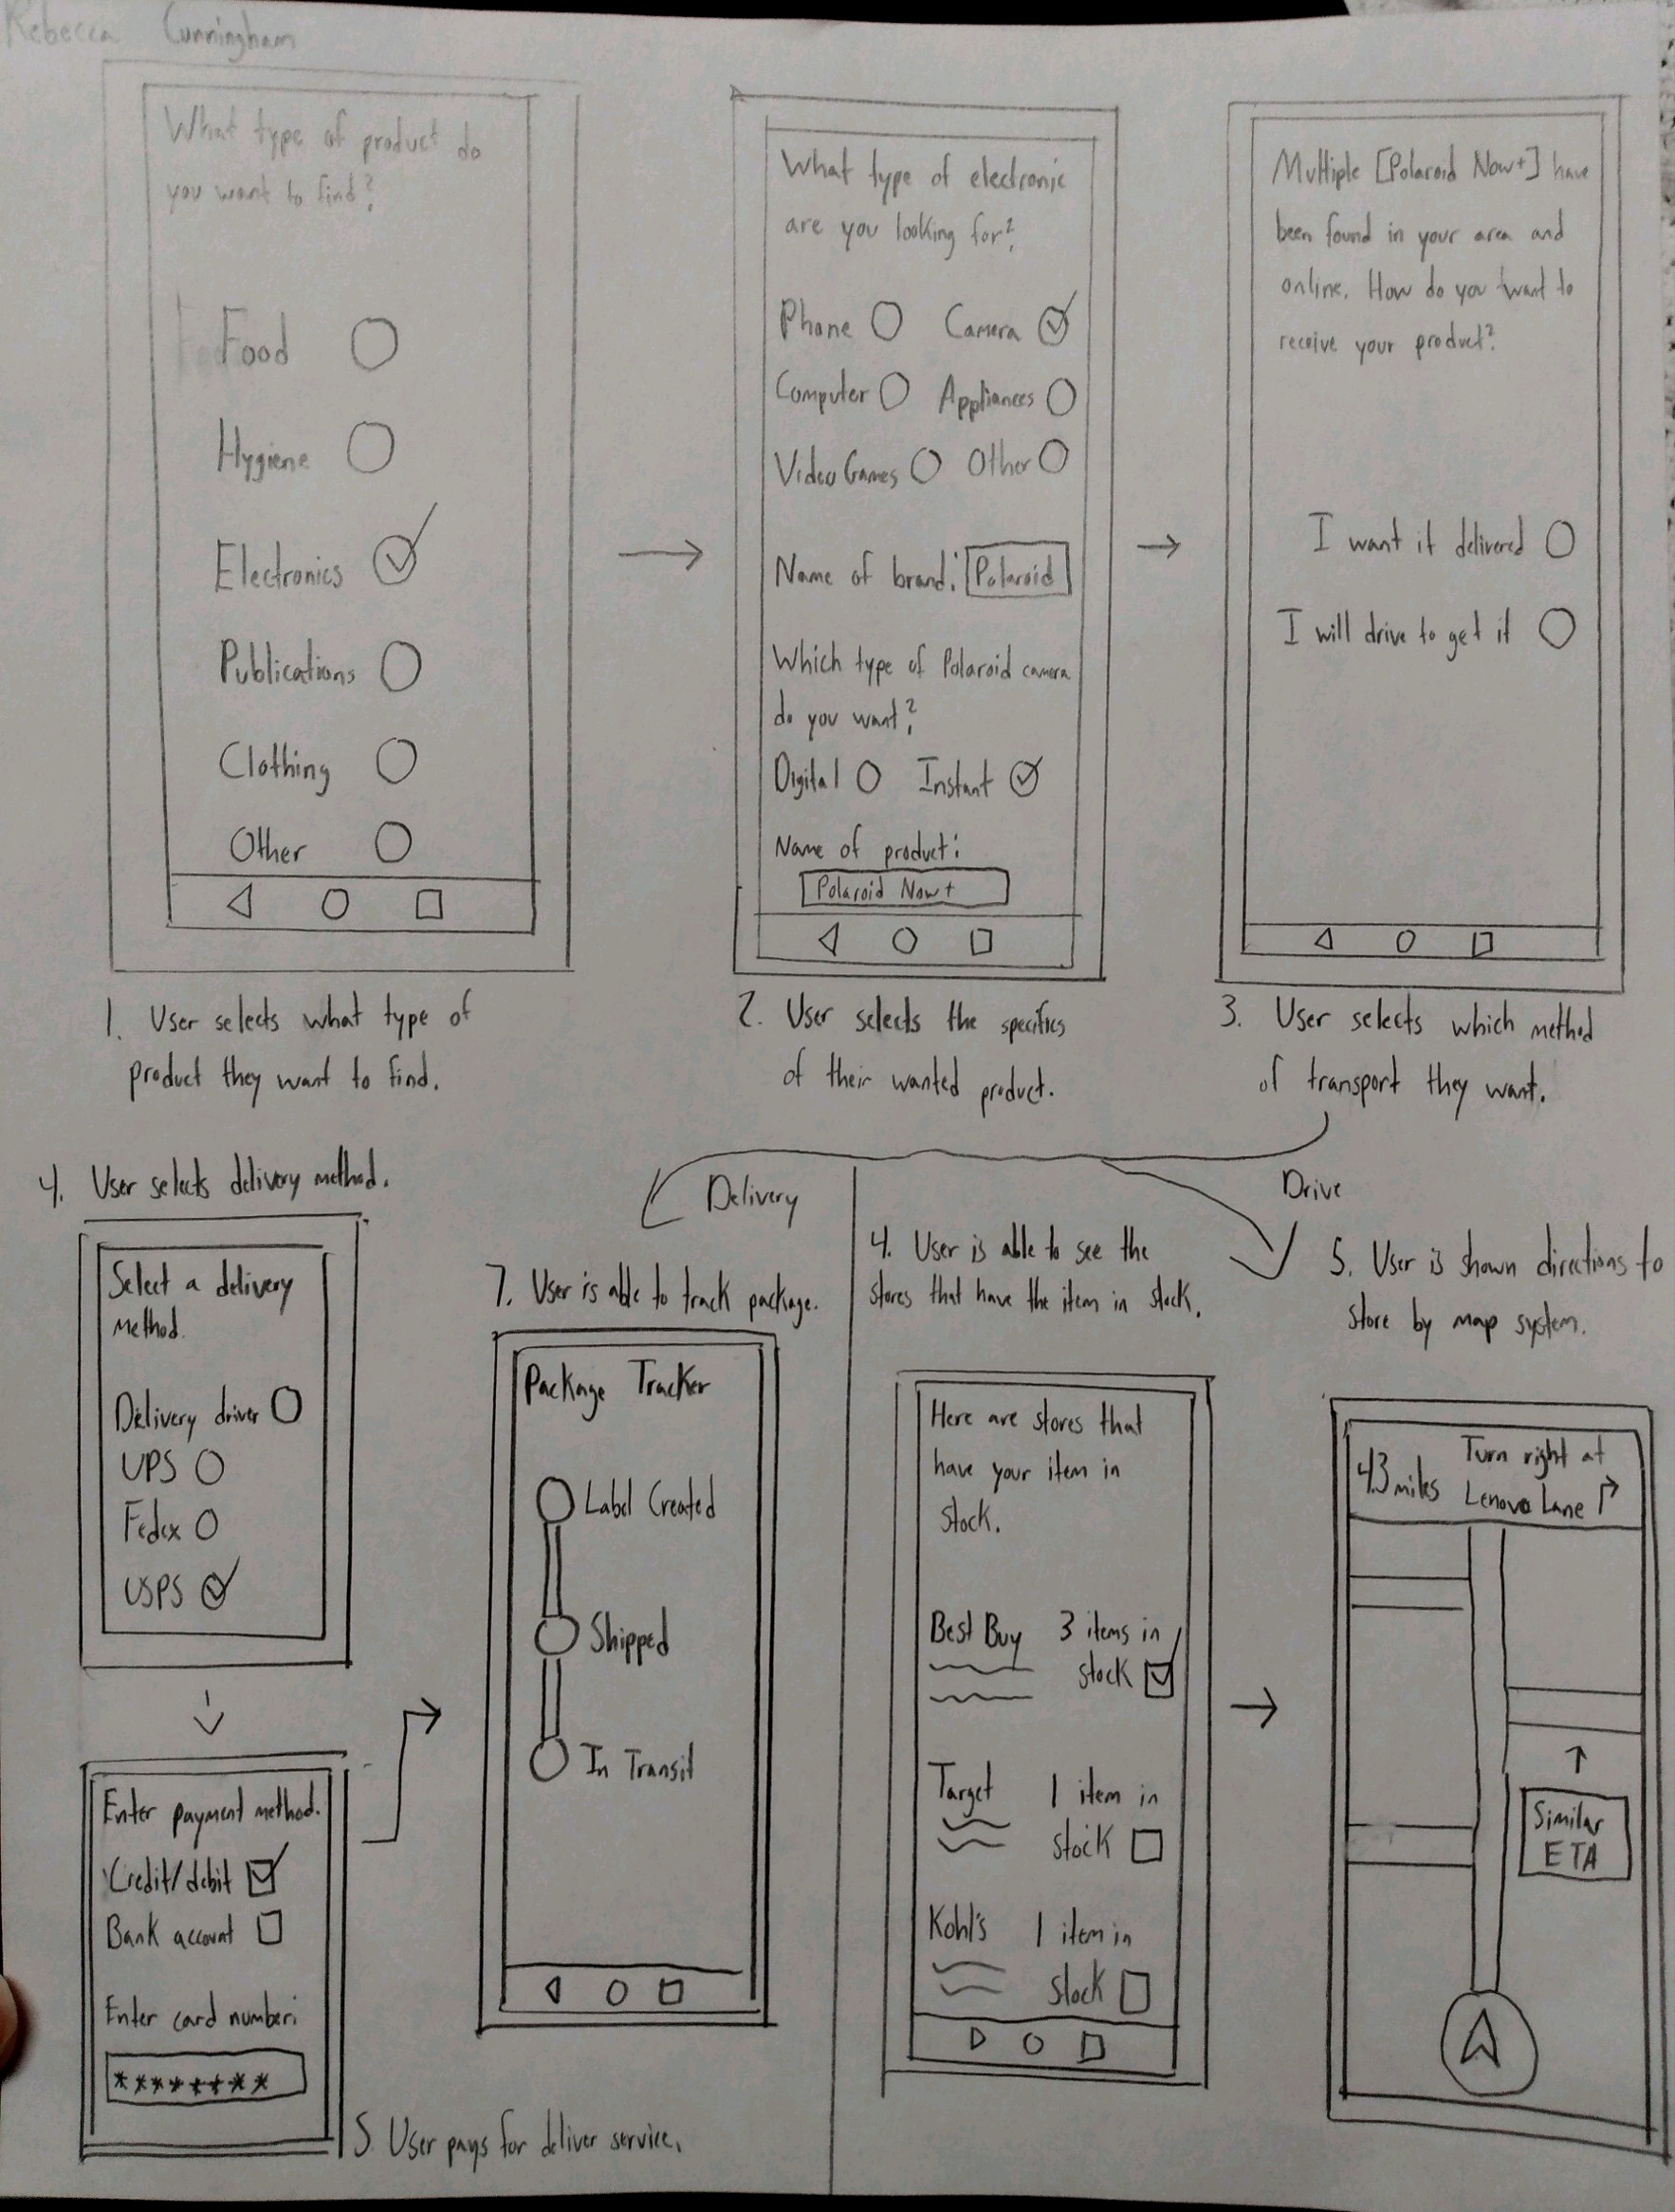 Rebecca Cunningham
What type of product do
you want to find?
Food
Hygiene
Electronics
Publications
Clothing
Other
1. User selects what type of
product they want to find.
What type of electronic
are you looking for?
Phone Camera
Computer Appliances
Video Games Other
Name of brand: Polaroid
Which type of Polaroid camera
do you want?
Digital Instant
Name of product:
Polaroid Now+
2. User selects the specifics
of their wanted product.
Multiple [Polaroid Now+] have
been found in your area and
online. How do you want to
receive your product?
I want it delivered
I will drive to get it
3. User selects which method
of transport they want.
Delivery
Drive
4. User selects delivery method.
Select a delivery
method.
Delivery driver
UPS
Fedex
USPS
Enter payment method.
Credit/debit
Bank account
Enter card number:
********
5. User pays for deliver service.
7. User is able to track package.
Package Tracker
Label Created
Shipped
In Transit
4. User is able to see the
stores that have the item in stock.
Here are stores that
have your item in
stock.
Best Buy 3 items in
stock
Target 1 item in
stock
Kohl's 1 item in
stock
5. User is shown directions to
store by map system.
4.3 miles Turn right at
Lenova Lane
Similar
ETA